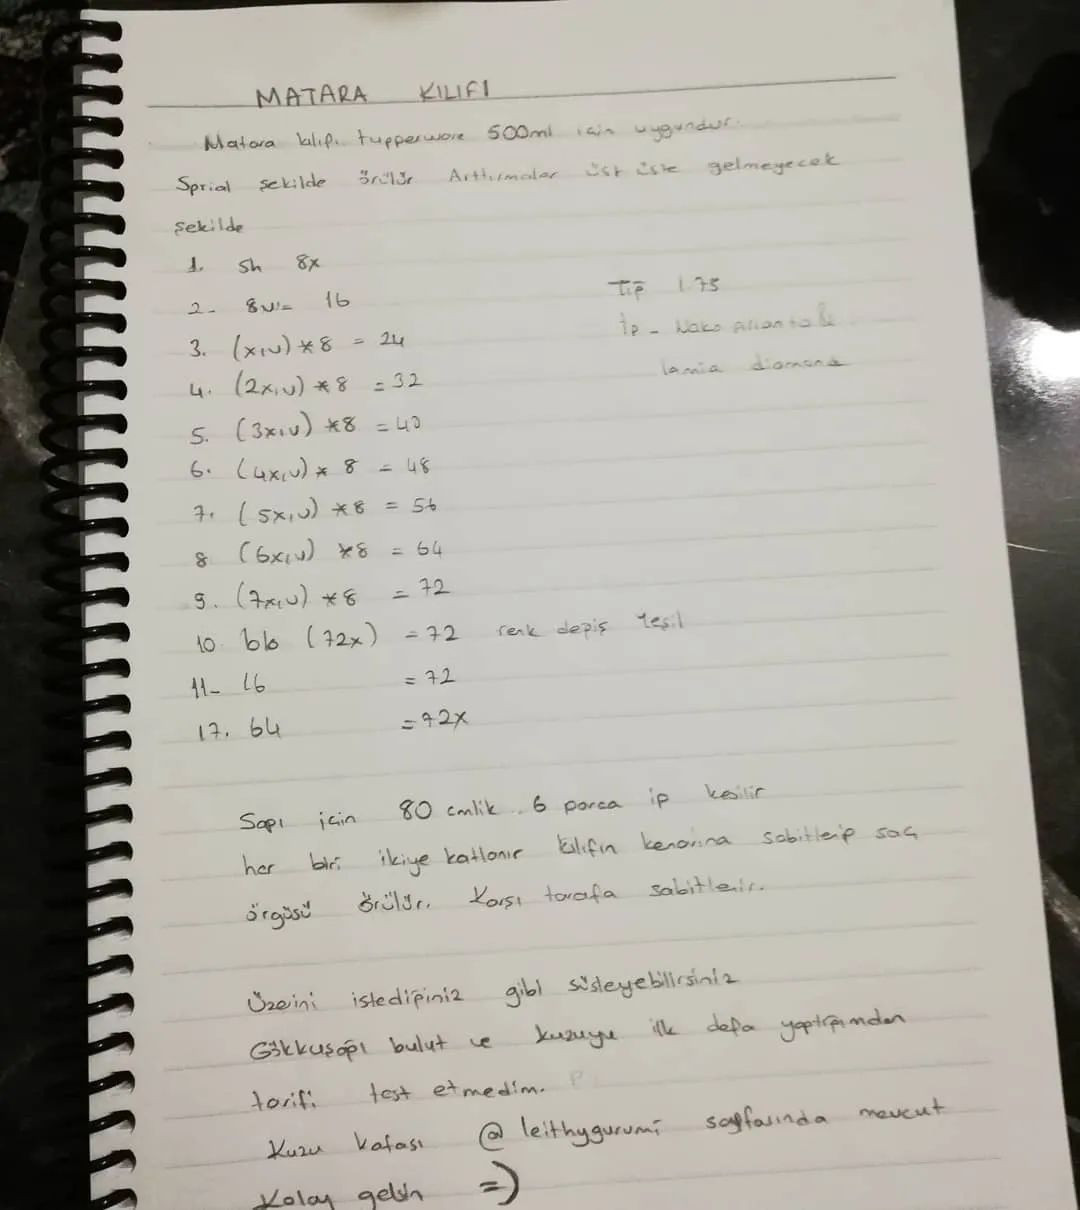 MATARA KILIFI
Matara kılıfı tupperware 500ml için uygundur.
Sprial şekilde örülür Arttırmalar üst üste gelmeyecek
şekilde
1. sh 8x
2- 8v = 16
3. (x,v) * 8 = 24
4. (2x,v) * 8 = 32
5. (3x,v) *8 = 40
6. (4x,v) * 8 = 48
7. (5x,v) *8 = 56
8 (6x,v) *8 = 64
9. (7x,v) *8 = 72
10. bb (72x) = 72 renk değiş Yeşil
11- = 72
17. = 72x
Tığ 1.75
İp - Nako &
lamia diamond
Sapı için 80 cmlik. 6 parça ip kesilir
her biri ikiye katlanır kılıfın kenarına sabitlenip saç
örgüsü örülür. Karşı tarafa sabitlenir.
Üzerini istediğiniz gibi süsleyebilirsiniz
Gökkuşağı bulut ve kuzuyu ilk defa yaptığımdan
tarifi test etmedim.
Kuzu kafası @leithygurumi sayfasında mevcut
Kolay gelsin =)